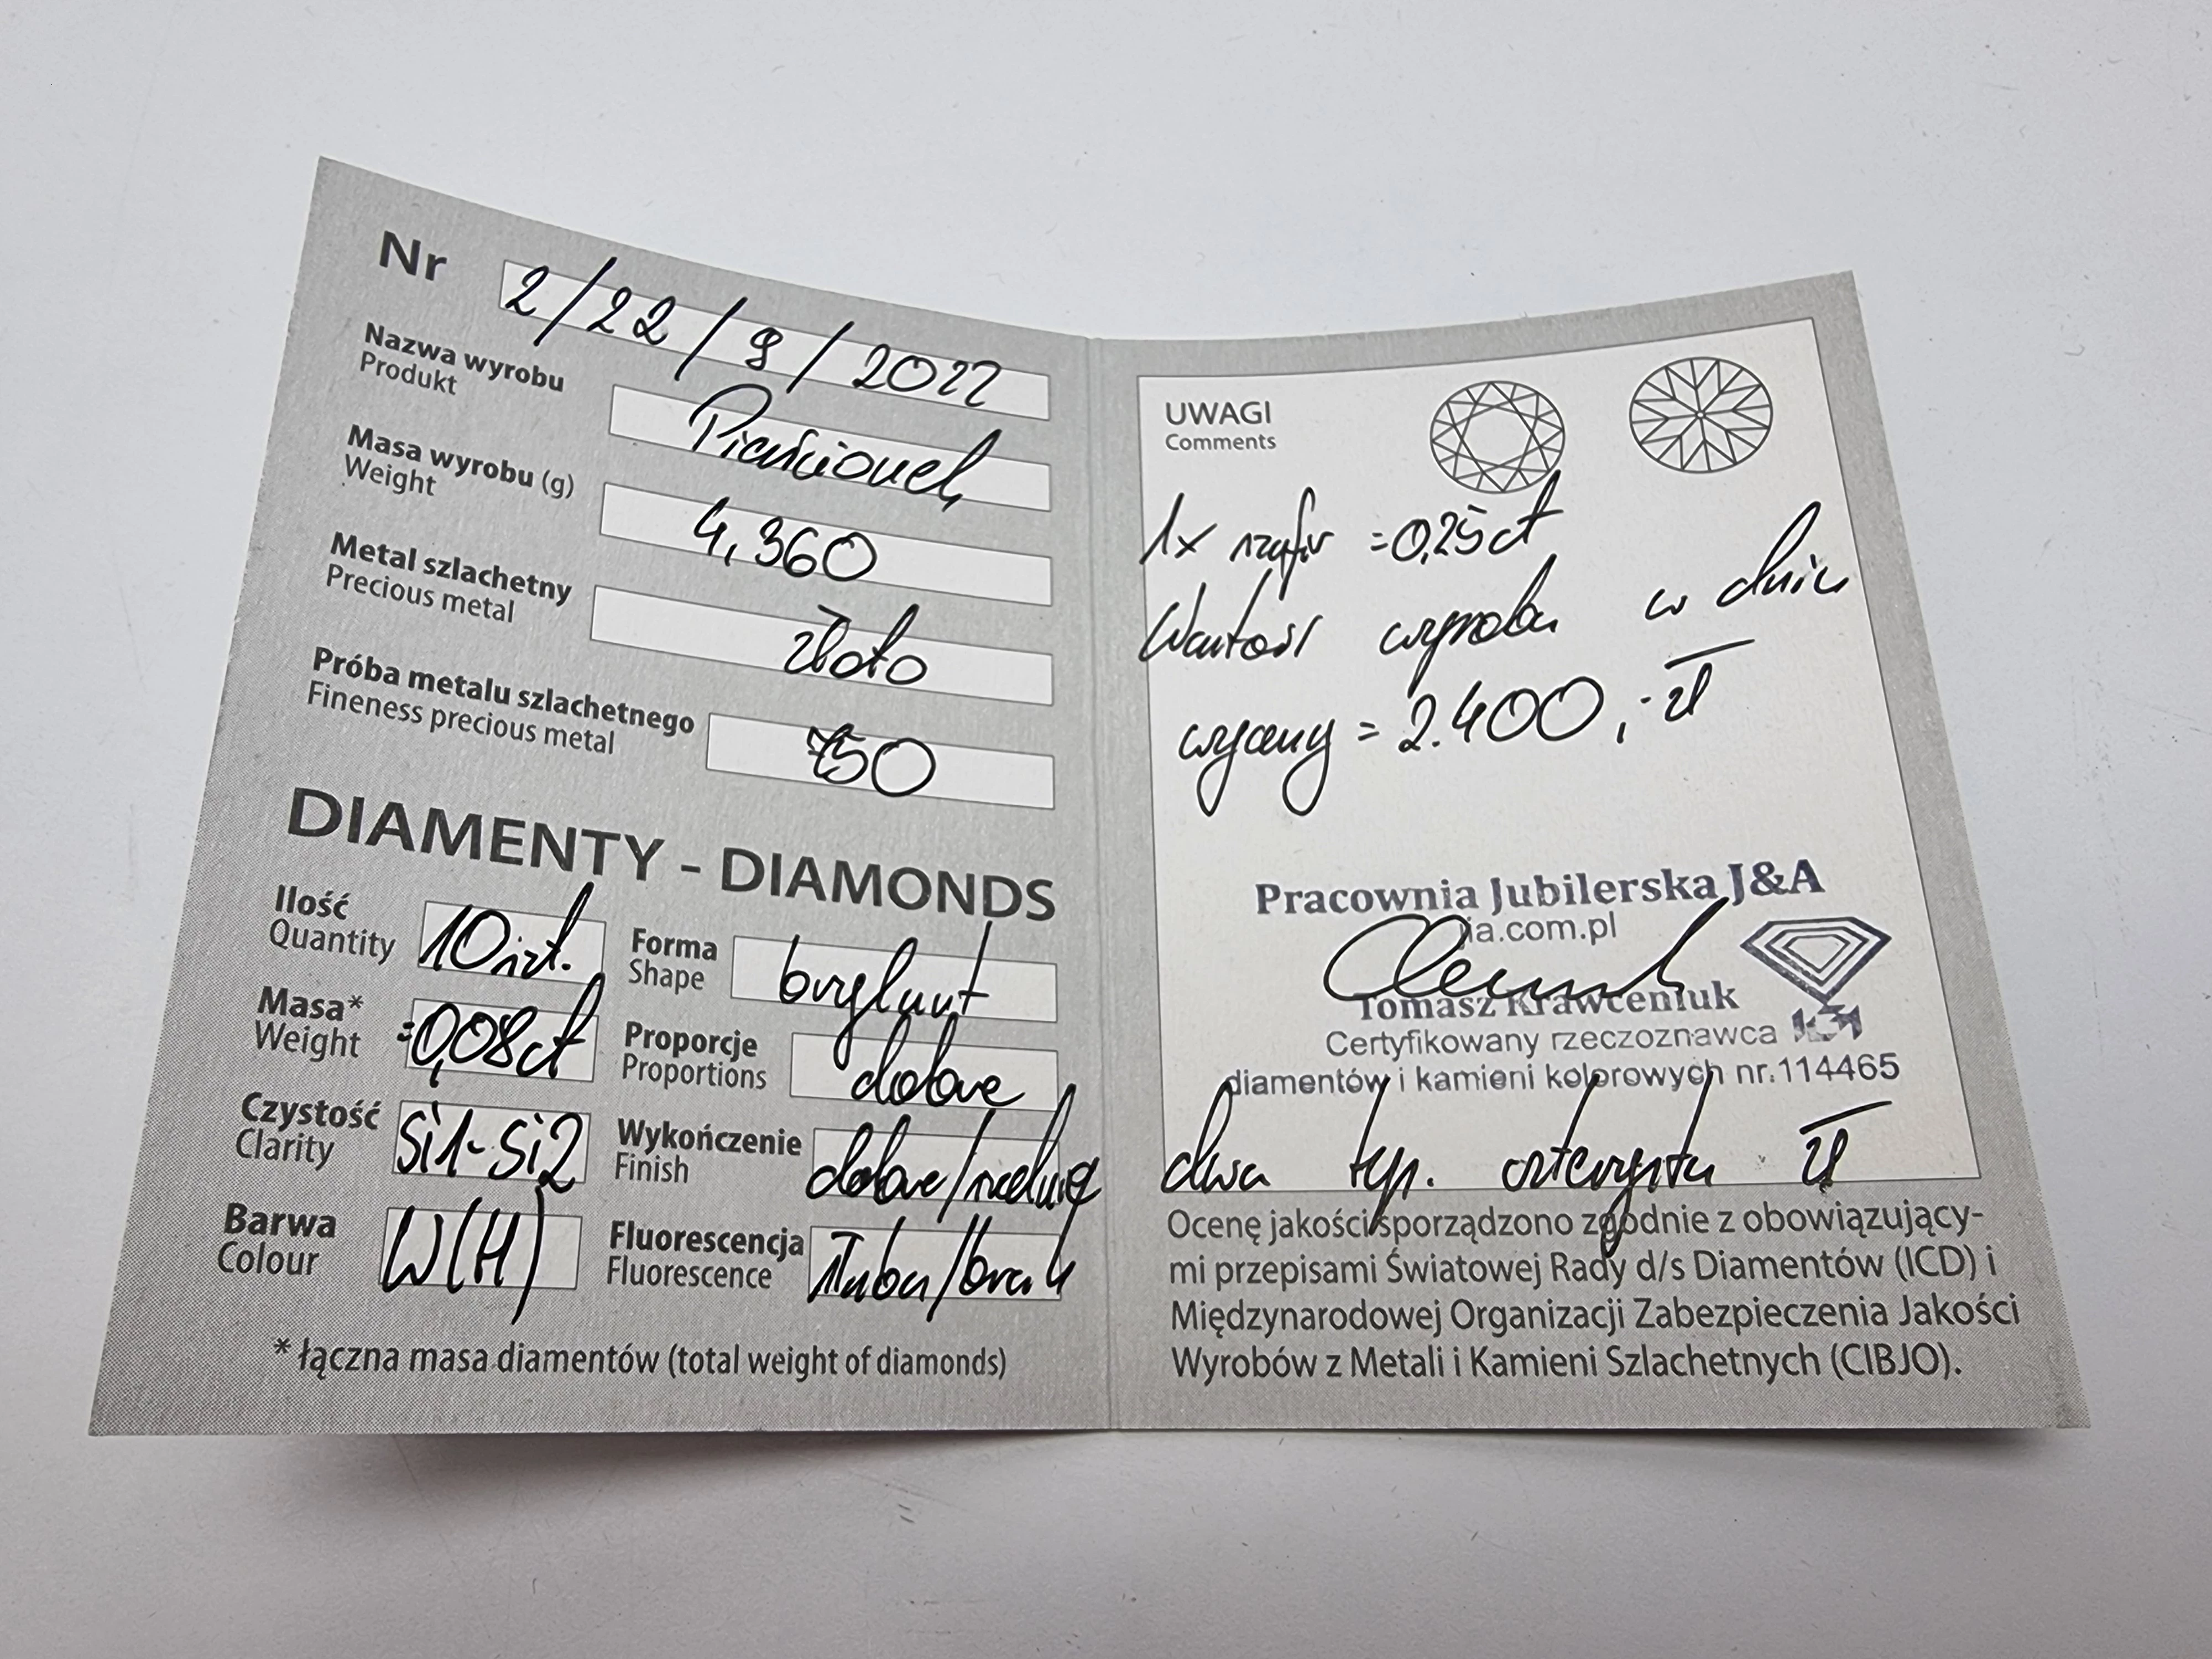 Nr 2/22/9/2022
Nazwa wyrobu
Produkt
Pierścionek
Masa wyrobu (g)
Weight
4,360
Metal szlachetny
Precious metal
złoto
Próba metalu szlachetnego
Fineness precious metal
750
DIAMENTY - DIAMONDS
Ilość
Quantity
10 szt.
Forma
Shape
brylant
Masa*
Weight
=0,08ct
Proporcje
Proportions
dobre
Czystość
Clarity
Si1-Si2
Wykończenie
Finish
dobre/średnie
Barwa
Colour
W(H)
Fluorescencja
Fluorescence
słaba/brak
* łączna masa diamentów (total weight of diamonds)
UWAGI
Comments
1x szafir =0,25ct
Wartość wyrobu w dniu
wyceny = 2.400,- zł
Pracownia Jubilerska J&A
ja.com.pl
Tomasz Krawceniuk
Certyfikowany rzeczoznawca
diamentów i kamieni kolorowych nr.114465
dwa tys. czterysta zł
Ocenę jakości sporządzono zgodnie z obowiązujący-
mi przepisami Światowej Rady d/s Diamentów (ICD) i
Międzynarodowej Organizacji Zabezpieczenia Jakości
Wyrobów z Metali i Kamieni Szlachetnych (CIBJO).